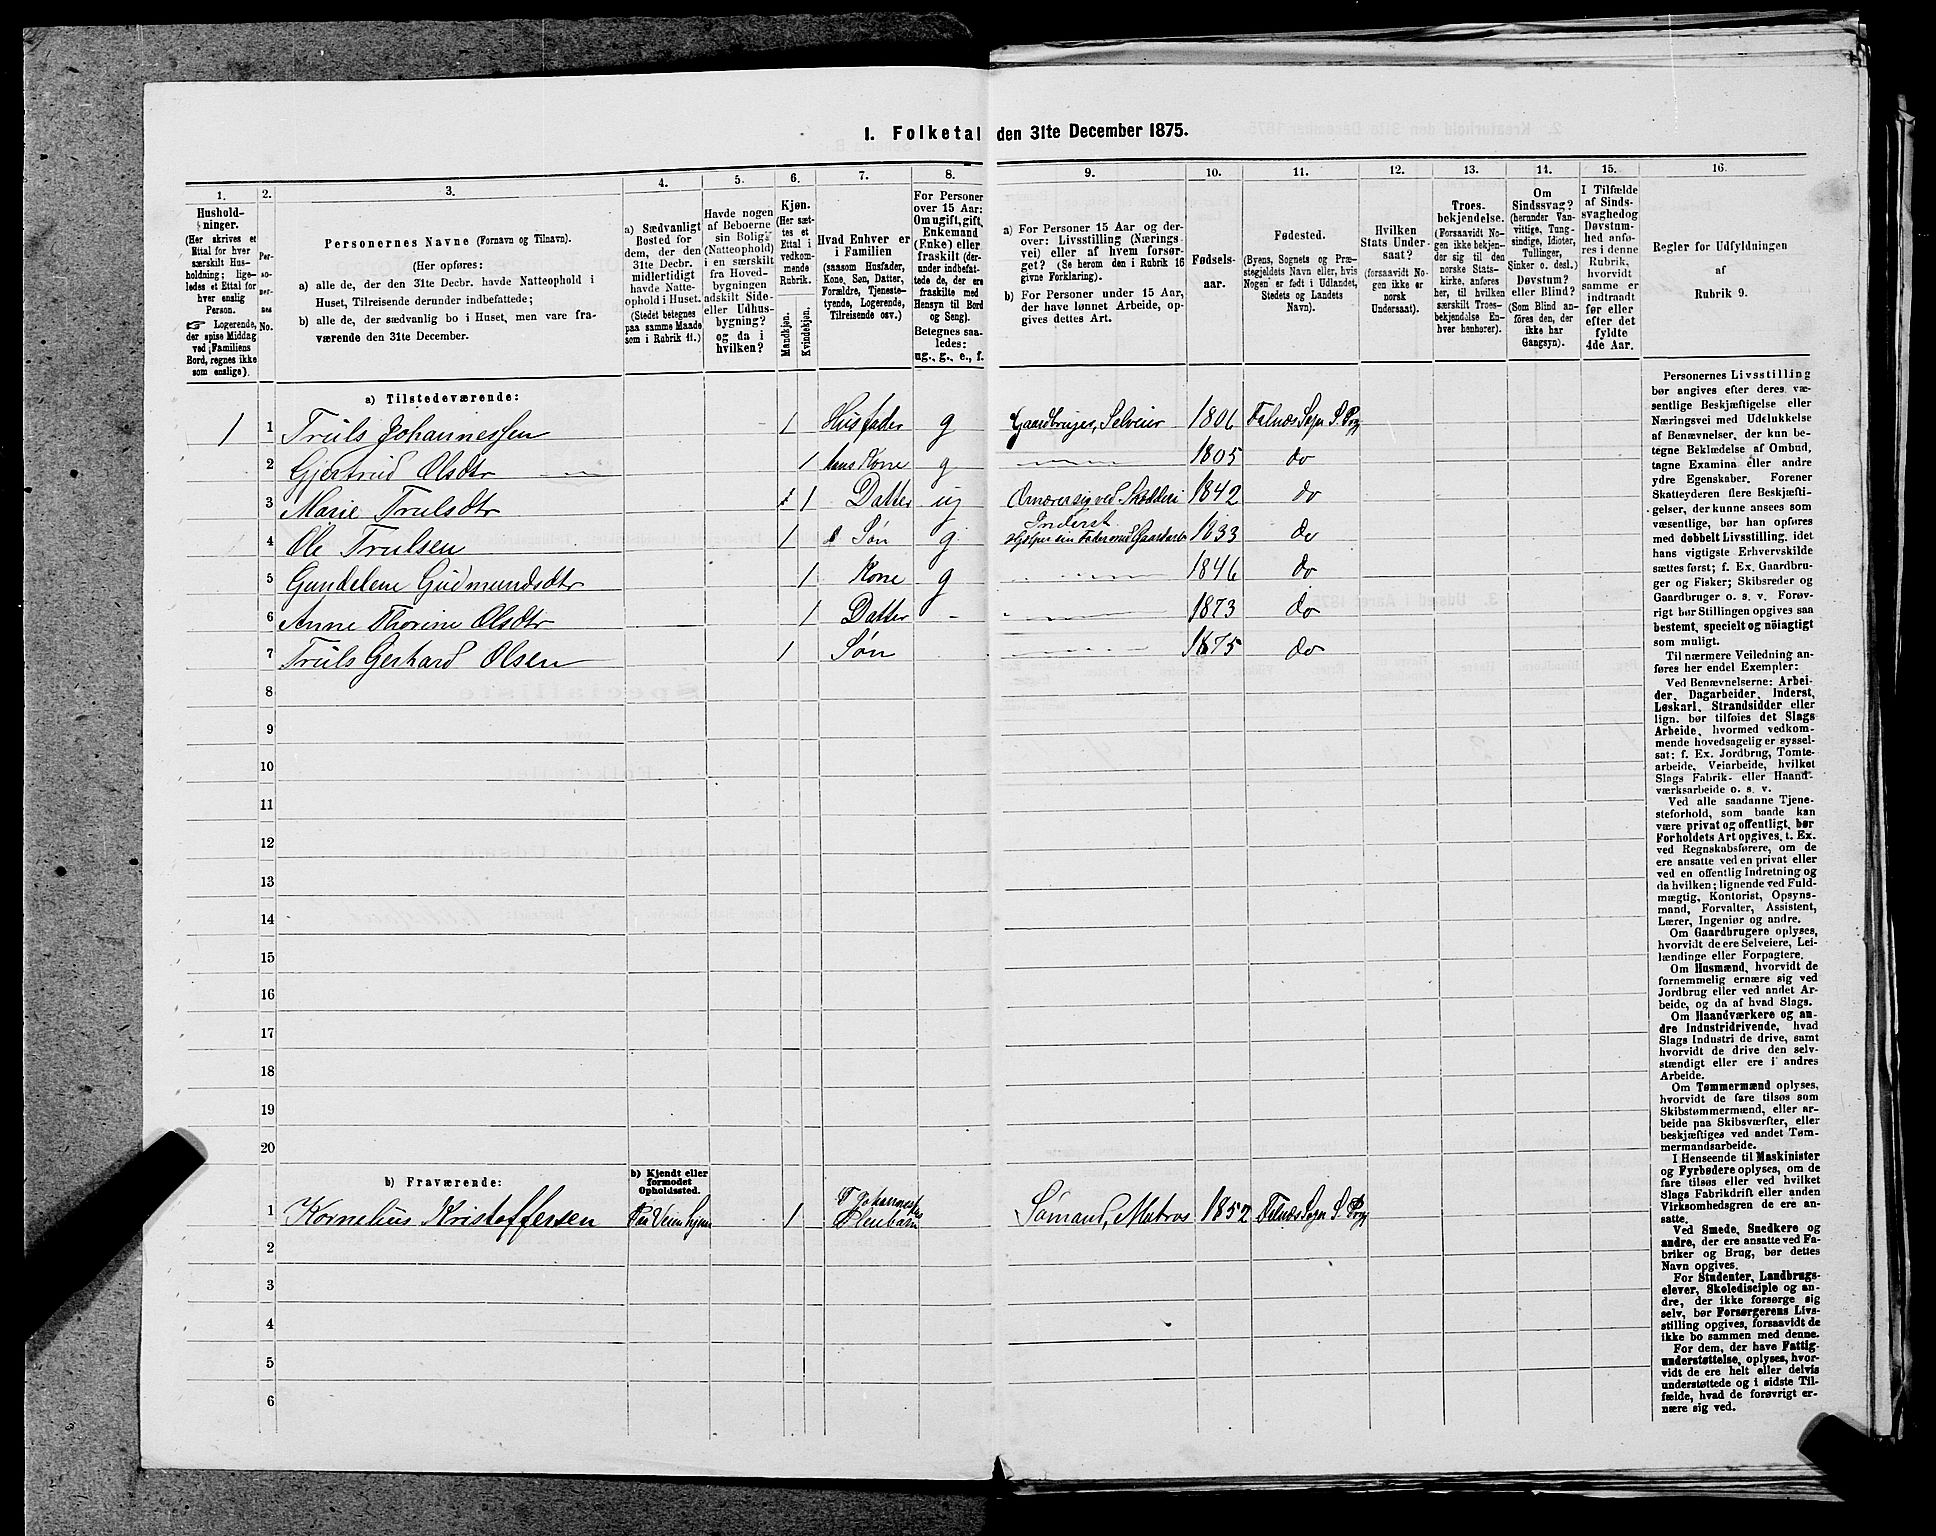 1. Folketal den 31te December 1875.
1.
Hushold-
ninger.
(Her skrives et
Ettal for hver
særskilt Hus-
holdning; lige-
ledes et Ettal for
hver enslig
Person.
☞ Logerende,
der spise Middag
ved Familiens
Bord, regnes ikke
som enslige).
2.
Per-
so-
ner-
nes
No.
3.
Personernes Navne (Fornavn og Tilnavn).
(Her opføres:
a) alle de, der den 31te Decbr. havde Natteophold i
Huset, Tilreisende derunder indbefattede;
b) alle de, der sædvanlig bo i Huset, men vare fra-
værende den 31te December.
4.
a) Sædvanligt
Bosted for
dem, der den
31te Decbr.
midlertidigt
havde Natte-
ophold i Huset.
(Stedet betegnes
paa samme Maade
som i Rubrik 11.)
5.
Havde nogen
af Beboerne
sin Bolig
(Natteophold)
i en særskilt
fra Hoved-
bygningen
adskilt Side-
eller Udhus-
bygning?
og da i
hvilken?
6.
Kjøn.
(Her sæt-
tes et
Ettal i
vedkom-
mende
Rubrik.
Mandkjøn.
Kvindekjøn.
7.
Hvad Enhver er
i Familien
(saasom Husfader,
Kone, Søn, Datter,
Forældre, Tjeneste-
tyende, Logerende,
Tilreisende osv.)
8.
For Personer
over 15 Aar:
Om ugift, gift,
Enkemand
(Enke) eller
fraskilt (der-
under indbefat-
tede de, der ere
fraskilte med
Hensyn til Bord
og Seng).
Betegnes saa-
ledes:
ug., g., e., f.
9.
a) For Personer 15 Aar og der-
over: Livsstilling (Nærings-
vei) eller af hvem forsør-
get? (Se herom den i Rubrik 16
givne Forklaring).
b) For Personer under 15 Aar,
der have lønnet Arbeide, op-
gives dettes Art.
10.
Fødsels-
aar.
11.
Fødested.
(Byens, Sognets og Præ-
stegjeldets Navn eller, hvis
Nogen er født i Udlandet,
Stedets og Landets
Navn).
12.
Hvilken
Stats Under-
saat?
(forsaavidt No-
gen ikke er
norsk
Undersaat).
13.
Troes-
bekjendelse.
(Forsaavidt No-
gen ikke bekjen-
der sig til den
norske Stats-
kirke, anføres
her, til hvilken
særskilt Troes-
bekjendelse En-
hver henhører).
14.
Om
Sindssvag?
(herunder Van-
vittige, Tung-
sindige, Idioter,
Tullinger,
Sinker o. desl.)
Døvstum?
eller Blind?
(Som Blind an-
føres den, der
ikke har
Gangsyn).
15.
I Tilfælde
af Sinds-
svaghed og
Døvstum-
hed anfø-
res i denne
Rubrik,
hvorvidt
samme er
indtraadt
før eller
efter det
fyldte
4de Aar.
16.
Regler for Udfyldningen
af
Rubrik 9.
a) Tilstedeværende:
1 1 Truls Johannessen 1 Husfader g Gaardbruger, Selveier 1806 Falnæs Sogn S. Prgj
2 Gjertrud Olsdtr 1 hans Kone g 1805 do
3 Marie Trulsdtr 1 Datter ug Ernærer sig ved Skrædderi 1842 do
4 Ole Trulsen 1 Søn g Inderst hjelper sin Fader med Gaardarb 1833 do
5 Gundelene Gudmundsdtr 1 Kone g 1846 do
6 Anne Thorine Olsdtr 1 Datter 1873 do
7 Truls Gerhard Olsen 1 Søn 1875 do
8
9
10
11
12
13
14
15
16
17
18
19
20
b) Fraværende:
b) Kjendt eller
formodet
Opholdssted.
1 Kornelius Kristoffersen 1 T. Johannesens Pleiebarn Sømand, Matros 1852 Falnæs Sogn S. Prgj
2
3
4
5
6
Personernes Livsstilling
bør angives efter deres væ-
sentlige Beskjæftigelse eller
Næringsvei med Udelukkelse
af Benævnelser, der kun be-
tegne Beklædelse af Ombud,
tagne Examina eller andre
ydre Egenskaber. Forener
Skatteyderen flere Beskjæfti-
gelser, der kunne ansees som
væsentlige, bør han opføres
med dobbelt Livsstilling, idet
hans vigtigste Erhvervskilde
sættes først; f. Ex. Gaardbru-
ger og Fisker; Skibsreder og
Gaardbruger o. s. v. Forøv-
rigt bør Stillingen opgives saa
bestemt, specielt og nöiagtigt
som muligt.
Til nærmere Veiledning an-
føres her endel Exempler:
Ved Benævnelserne: Arbei-
der, Dagarbeider, Inderst,
Løskarl, Strandsidder eller
lign. bør tilføies det Slags
Arbeide, hvormed vedkom-
mende hovedsagelig er syssel-
sat; f. Ex. Jordbrug, Tomte-
arbeide, Veiarbeide, hvilket
Slags Fabrik- eller Haand-
værksarbeide o. s. v.
Ved alle saadanne Tjene-
steforhold, som baade kan
være privat og offentligt, bør
Forholdets Art opgives, t. Ex.
ved Regnskabsførere, om de
ere ansatte ved en privat eller
ved en offentlig Indretning og
da hvilken; lignende ved Fuld-
mægtig, Kontorist, Opsyns-
mand, Forvalter, Assistent,
Lærer, Ingeniør og andre.
Om Gaardbrugere oplyses,
hvorvidt de ere Selveiere, Lei-
lændinge eller Forpagtere.
Om Husmænd, hvorvidt de
fornemmelig ernære sig ved
Jordbrug eller ved andet Ar-
beide, og da af hvad Slags.
Om Haandværkere og an-
dre Industridrivende, hvad
Slags Industri de drive, samt
hvorvidt de drive den selv-
stændigt eller ere i andres
Arbeide.
Om Tømmermænd oplyses,
hvorvidt de fare tilsøs som
Skibstømmermænd, eller ar-
beide paa Skibsværfter, eller
beskjæftiges ved andet Tøm-
mermandsarbeide.
I Henseende til Maskinister
og Fyrbødere oplyses, om de
fare tilsøs eller ved hvilket
Slags Fabrikdrift eller anden
Virksomhedsgren de ere an-
satte.
Ved Smede, Snedkere og
andre, der ere ansatte ved Fa-
briker og Brug, bør dettes
Navn opgives.
For Studenter, Landbrugs-
elever, Skoledisciple og an-
dre, der ikke forsørge sig
selv, bør Forsørgerens Livs-
stilling opgives, forsaavidt de
ikke bo sammen med denne.
For dem, der have Fattig-
understøttelse, oplyses, hvor-
vidt de ere helt eller delvis
understøttede og i sidste Til-
fælde, hvad de forøvrigt er-
nære sig ved.